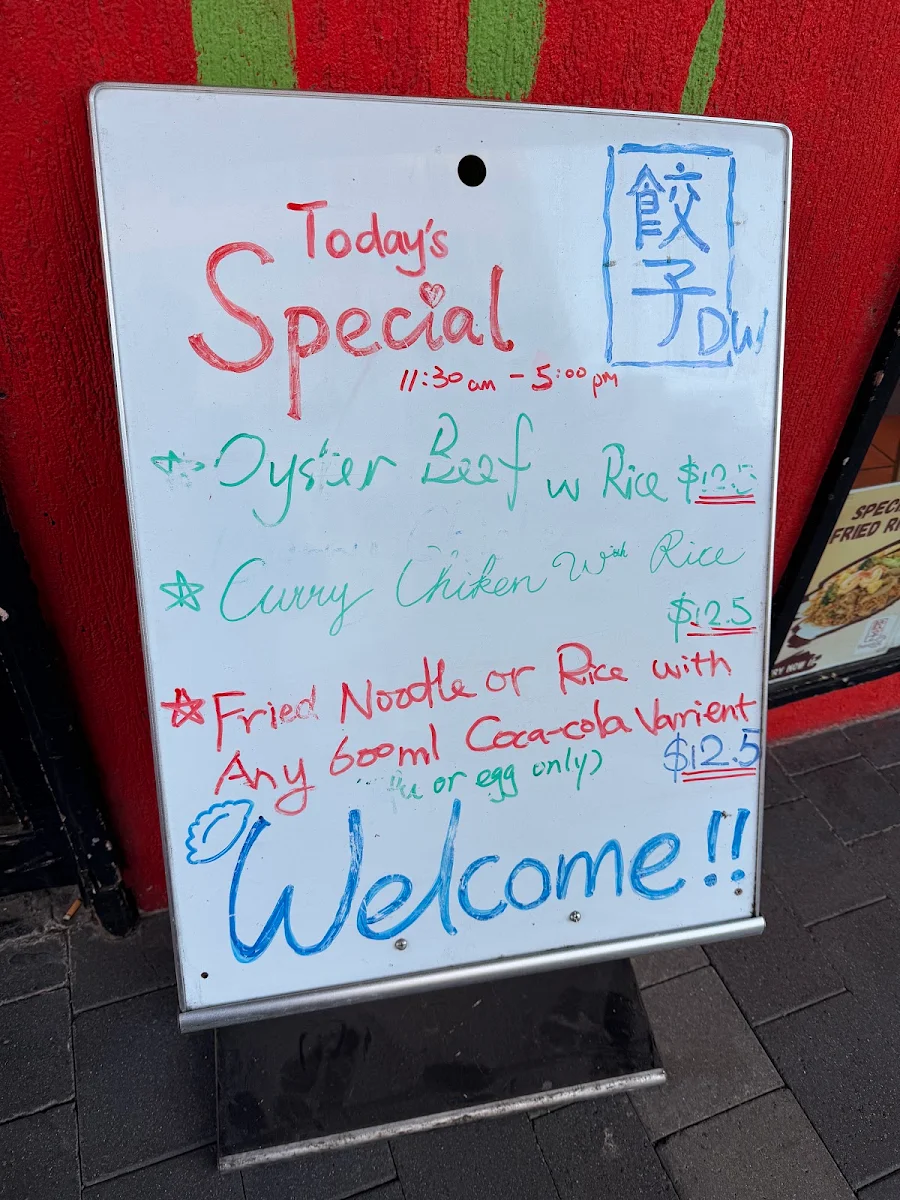 餃子
DW
Today's
Special
11:30 am - 5:00 pm
Oyster Beef w Rice $12.5
Curry Chiken With Rice
$12.5
Fried Noodle or Rice with
Any 600ml Coca-cola Varrient
or egg only) $12.5
Welcome!!
SPECI
FRIED RI
RY NOW